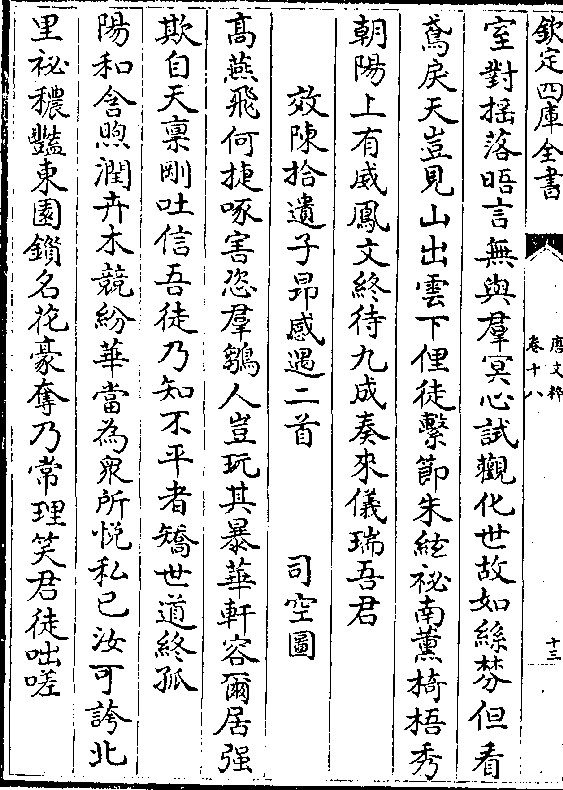 欽定四庫全書
唐文粹
卷十八
十三
室對揺落晤言無與羣冥心試觀化世故如絲棼但看
鳶戾天豈見山出雲下俚徒擊節朱絃祕南薰椅梧秀
朝陽上有威鳳文終待九成奏來儀瑞吾君
效陳拾遺子昂感遇二首 司空圖
髙燕飛何捷啄害恣羣鶵人豈玩其暴華軒容爾居强
欺自天稟剛吐信吾徒乃知不平者矯世道終孤
陽和含煦潤卉木競紛華當為衆所悦私已汝可誇北
里祕穠豔東園鎻名花豪奪乃常理笑君徒咄嗟